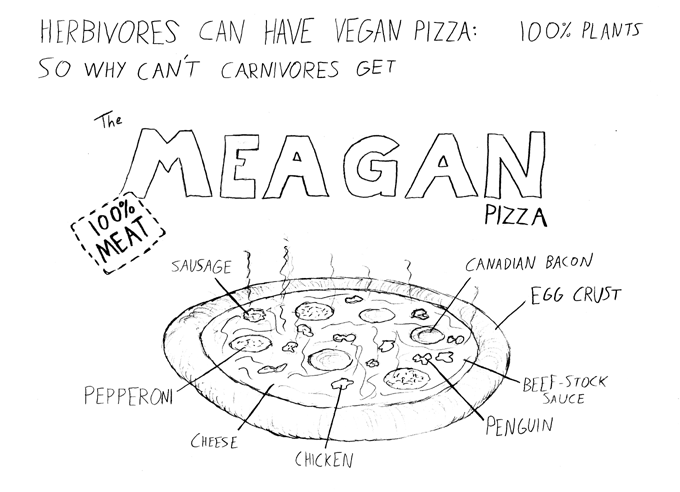 HERBIVORES CAN HAVE VEGAN PIZZA: 100% PLANTS
SO WHY CAN'T CARNIVORES GET
The
MEAGAN
PIZZA
100%
MEAT
SAUSAGE
CANADIAN BACON
EGG CRUST
PEPPERONI
BEEF-STOCK
SAUCE
PENGUIN
CHEESE
CHICKEN